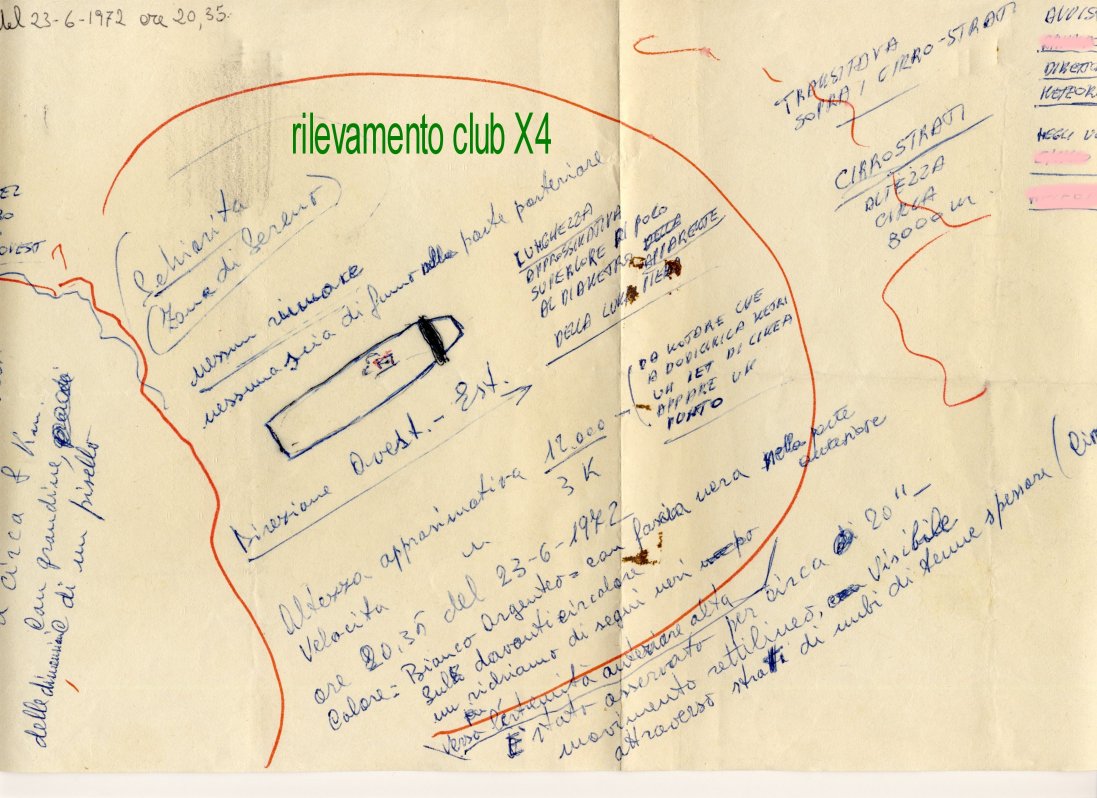 del 23-6-1972 ore 20,35.
rilevamento club X4
TRANSITAVA
SOPRA I CIRRO-STRATI
CIRROSTRATI
ALTEZZA
CIRCA
8000 m.
NEGLI
OVEST
Schiarita
(Zona di Sereno)
nessun rumore
nessuna scia di fumo nella parte posteriore
LUNGHEZZA
APPROSSIMATIVA
SUPERIORE DI POCO
AL DIAMETRO APPARENTE
DELLA LUNA PIENA
DA NOTARE CHE
A DODICIMILA METRI
UN JET DI CIRCA
APPARE UN
PUNTO
Direzione Ovest. - Est.
Altezza approssimativa 12.000
Velocità " 3 K
ore 20,35 del 23-6-1972
Colore = Bianco Argenteo = con fascia nera nella parte anteriore
Sul davanti circolare
un richiamo di segni neri un po
più verso l'estremità anteriore alta
È stato osservato per circa di 20" -
movimento rettilineo, Visibile
attraverso strati di nubi di tenue spessore
a circa 8 Km.
con grandine,
delle dimensioni di un pisello